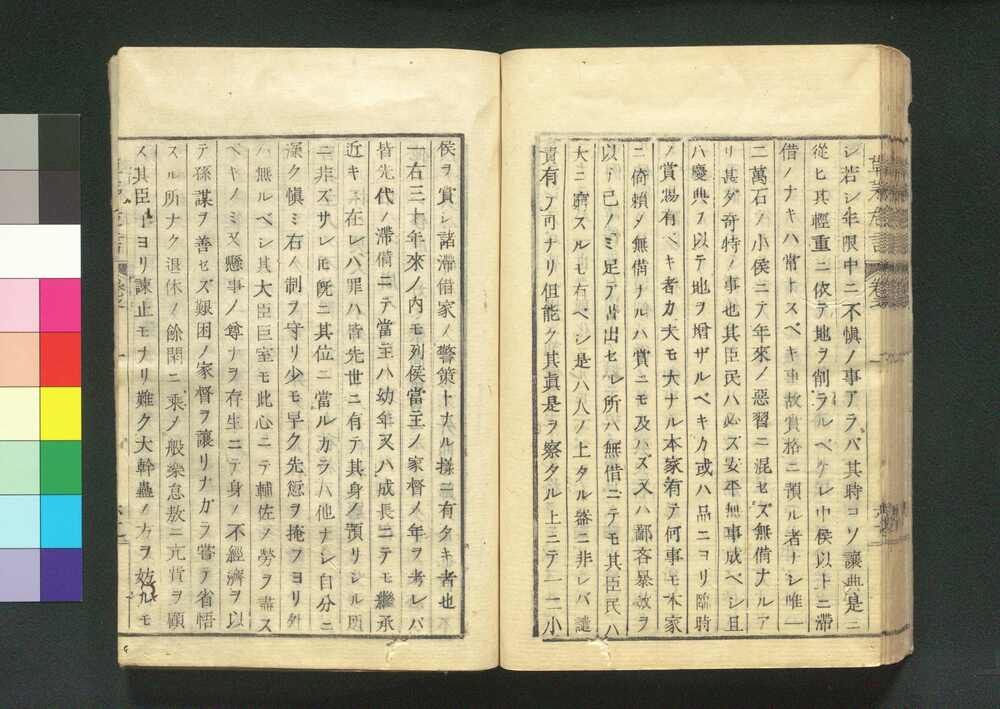 シ若シ年限中ニ不愼ノ事アラバ其時コソ讓典是ニ
從ヒ其輕重ニ依テ地ヲ削ラルベケレ中侯以上ニ滯
借ノナキハ常トスベキ事故賞格ニ預ル者ナシ唯一
二萬石ノ小侯ニテ年來ノ惡習ニ混セズ無借ナルア
リ甚ダ奇特ノ事也其臣民ハ必ズ安平無事成ベシ且
ハ慶典ヲ以テ地ヲ增ザルベキカ或ハ品ニヨリ臨時
ノ賞賜有ベキ者カ大モ大ナル本家有テ何事モ本家
ニ倚賴シ無借ナルハ賞ニモ及バズ又ハ鄙吝暴歛ヲ
以テ己ノミ足テ書出セシ所ハ無借ニテモ其臣民ハ
大ニ窮スルモ有ベシ是ハ人ノ上タル器ニ非レバ譴
責有テ可ナリ但能ク其眞是ヲ察タル上ニテ一二小
侯ヲ賞シ諸滯借家ノ警策トナル樣ニ有タキ者也
一右三十年來ノ內モ列侯當主ノ家督ノ年ヲ考レバ
皆先代ノ滯借ニテ當主ハ幼年又ハ成長ニテモ繼承
近キニ在レバ罪ハ皆先世ニ有テ其身ノ預リシル所
ニ非ズサレモ旣ニ其位ニ當ルカラハ他ナシ自分ニ
深ク愼ミ右ノ制ヲ守リ少モ早ク先愆ヲ掩フヨリ外
ハ無ルベシ其大臣巨室モ此心ニテ輔佐ノ勞ヲ盡ス
ベキノミ又懸車ノ尊ナヲ存生ニテ身ノ不經濟ヲ以
テ孫謀ヲ善セズ艱困ノ家督ヲ讓リナガラ嘗テ省悟
スル所ナク退休ノ餘閑ニ乘ジ般樂怠敖ニ冗費ヲ顧
ズ其臣下ヨリ諫止モナリ難ク大幹蠱ノ方ヲ妨ルモ